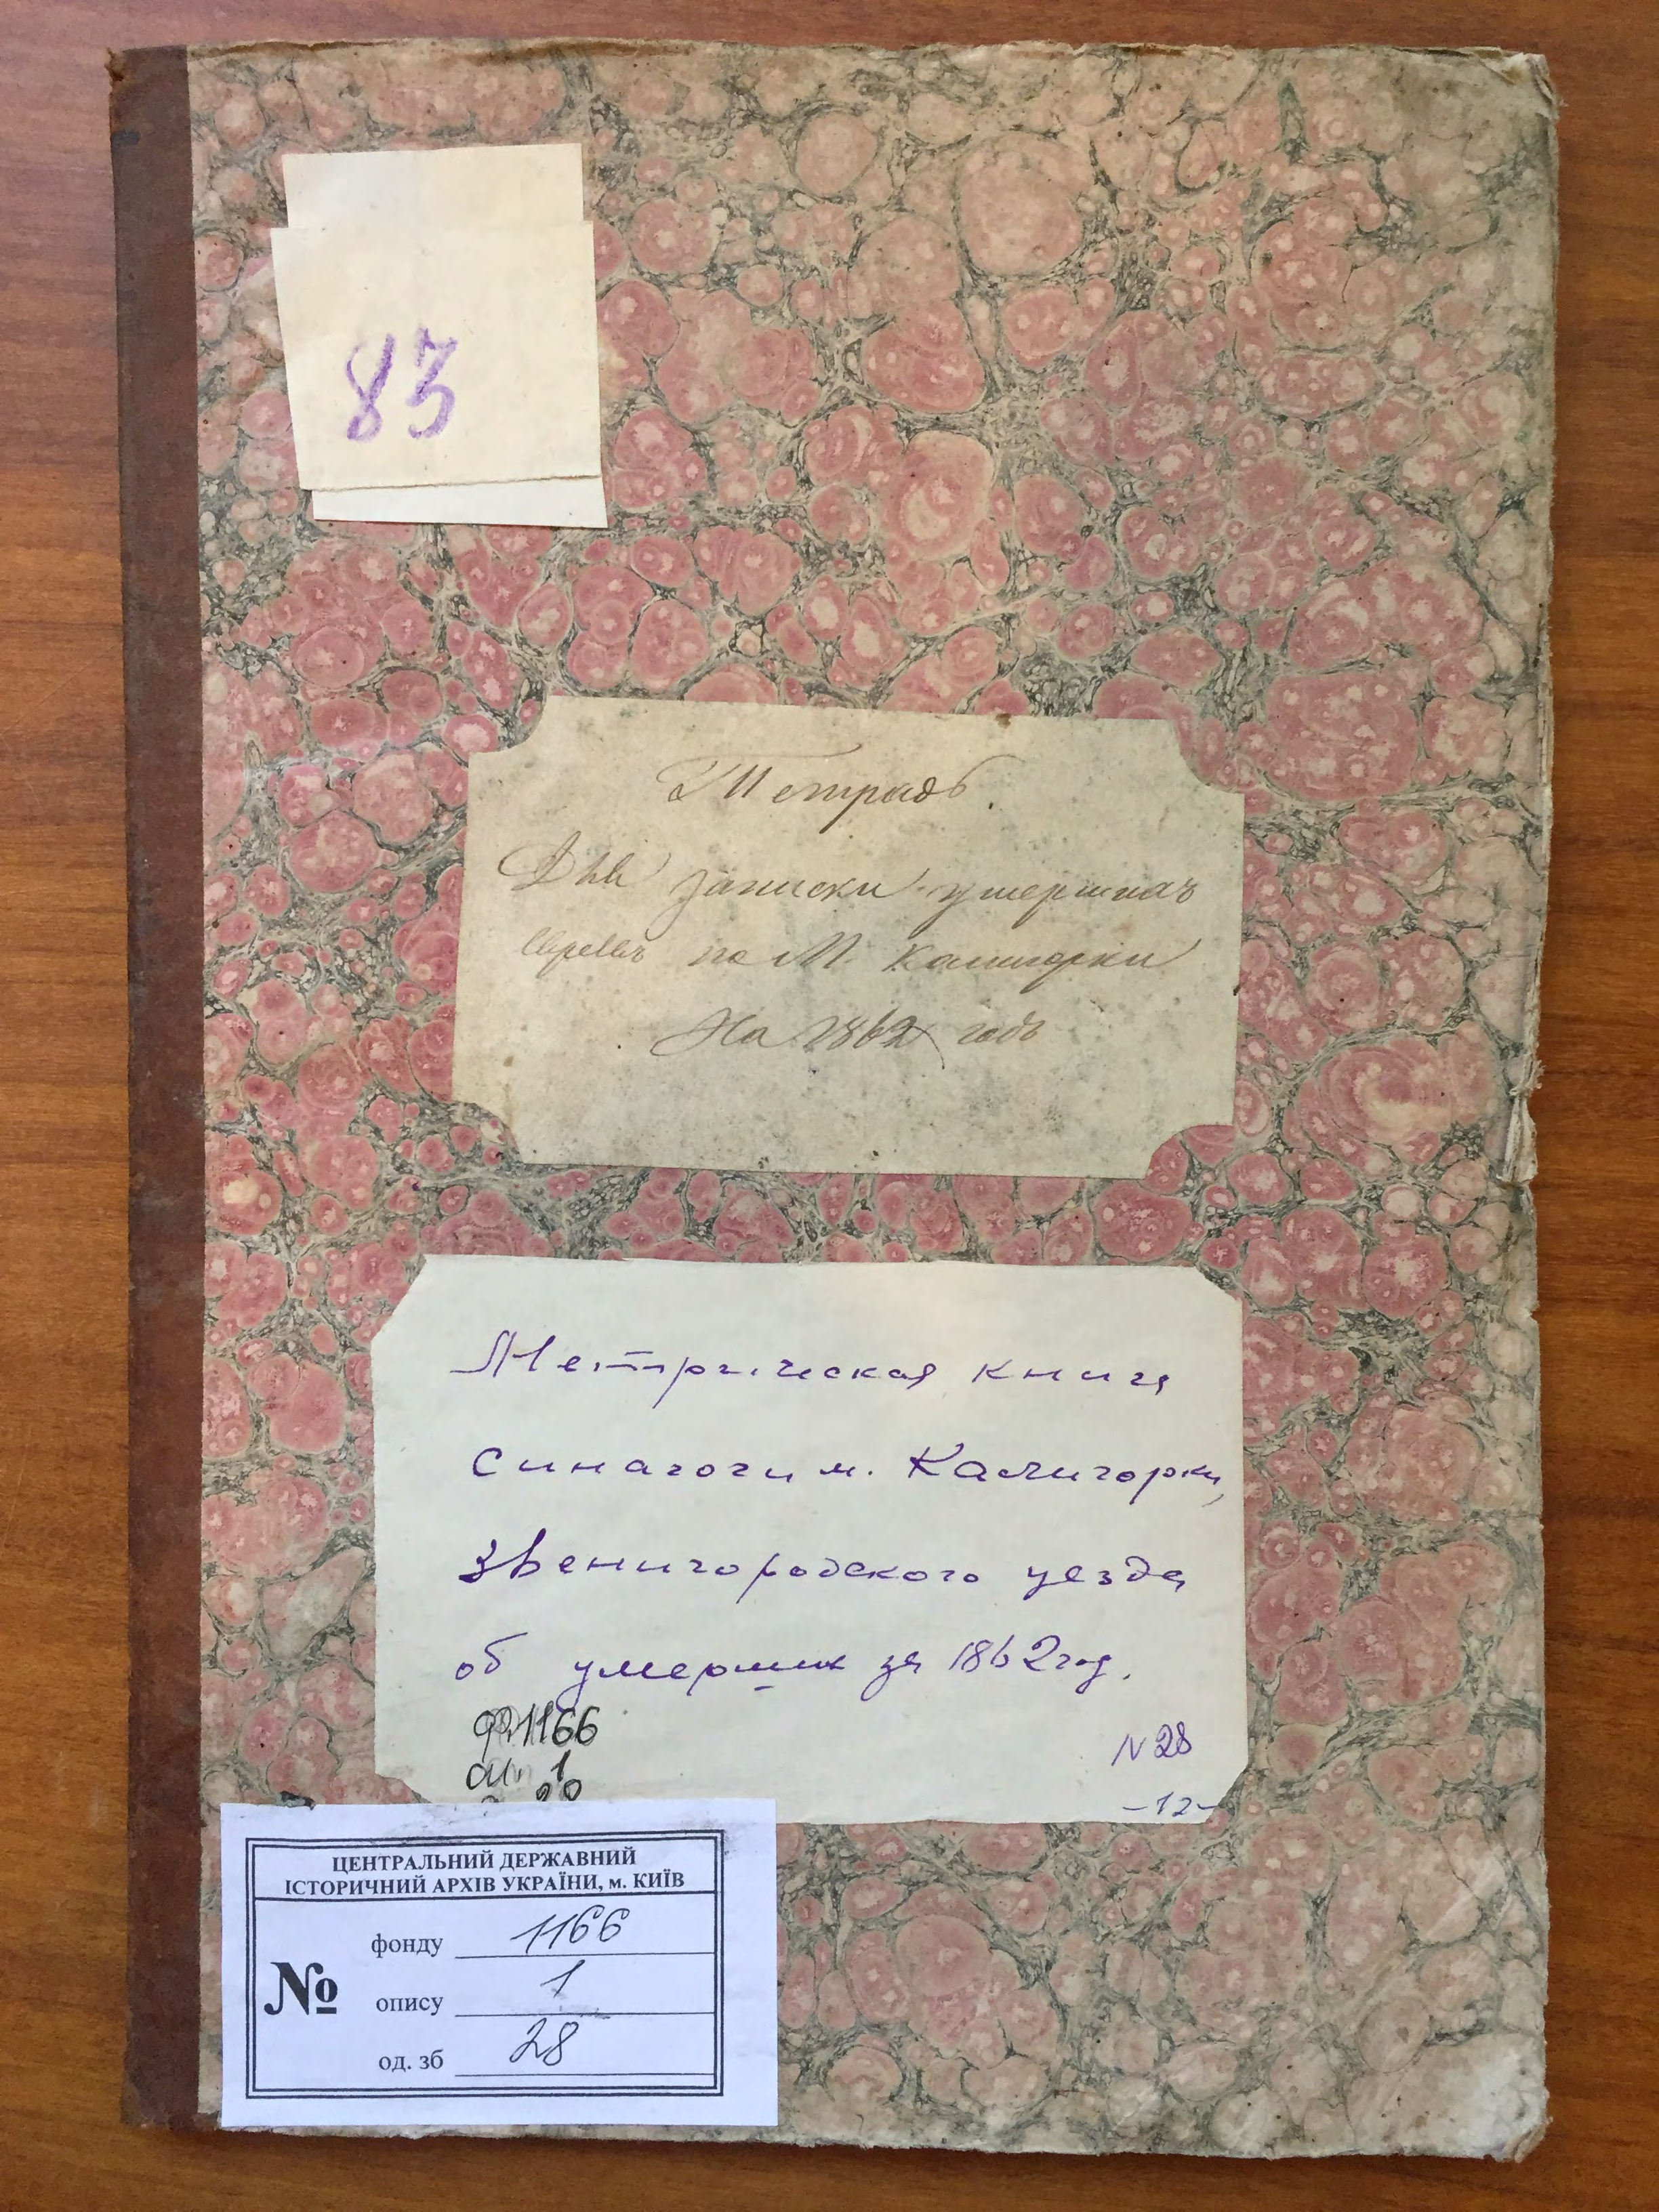 83
Тетрадь.
Для записки умершихъ
Евреевъ по М. Калигорки
На 1862 годъ
Метрическая книга
синагоги м. Калигорки,
Звенигородского уезда
об умерших за 1862 год.
ф 1166
оп 1
28
N 28
-12-
ЦЕНТРАЛЬНИЙ ДЕРЖАВНИЙ
ІСТОРИЧНИЙ АРХІВ УКРАЇНИ, м. КИЇВ
№
фонду 1166
опису 1
од. зб 28